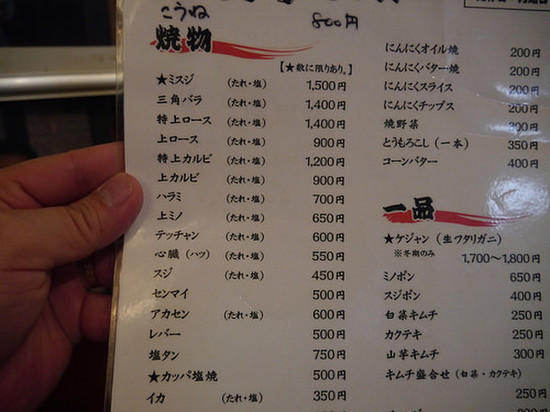 こうね 800円
焼物
【★数に限りあり。】
★ミスジ (たれ・塩) 1,500円
三角バラ (たれ・塩) 1,400円
特上ロース (たれ・塩) 1,400円
上ロース (たれ・塩) 900円
特上カルビ (たれ・塩) 1,200円
上カルビ (たれ・塩) 900円
ハラミ (たれ・塩) 700円
上ミノ (たれ・塩) 650円
テッチャン (たれ・塩) 600円
心臓(ハツ) (たれ・塩) 550円
スジ (たれ・塩) 450円
センマイ 500円
アカセン (たれ・塩) 600円
レバー 500円
塩タン 750円
★カッパ塩焼 500円
イカ (たれ・塩) 350円
にんにくオイル焼 200円
にんにくバター焼 200円
にんにくスライス 200円
にんにくチップス 200円
焼野菜 300円
とうもろこし(一本) 350円
コーンバター 400円
一品
★ケジャン(生フタリガニ)
※冬期のみ 1,700〜1,800円
ミノポン 650円
スジポン 400円
白菜キムチ 250円
カクテキ 250円
山芋キムチ 300円
キムチ盛合せ(白菜・カクテキ)